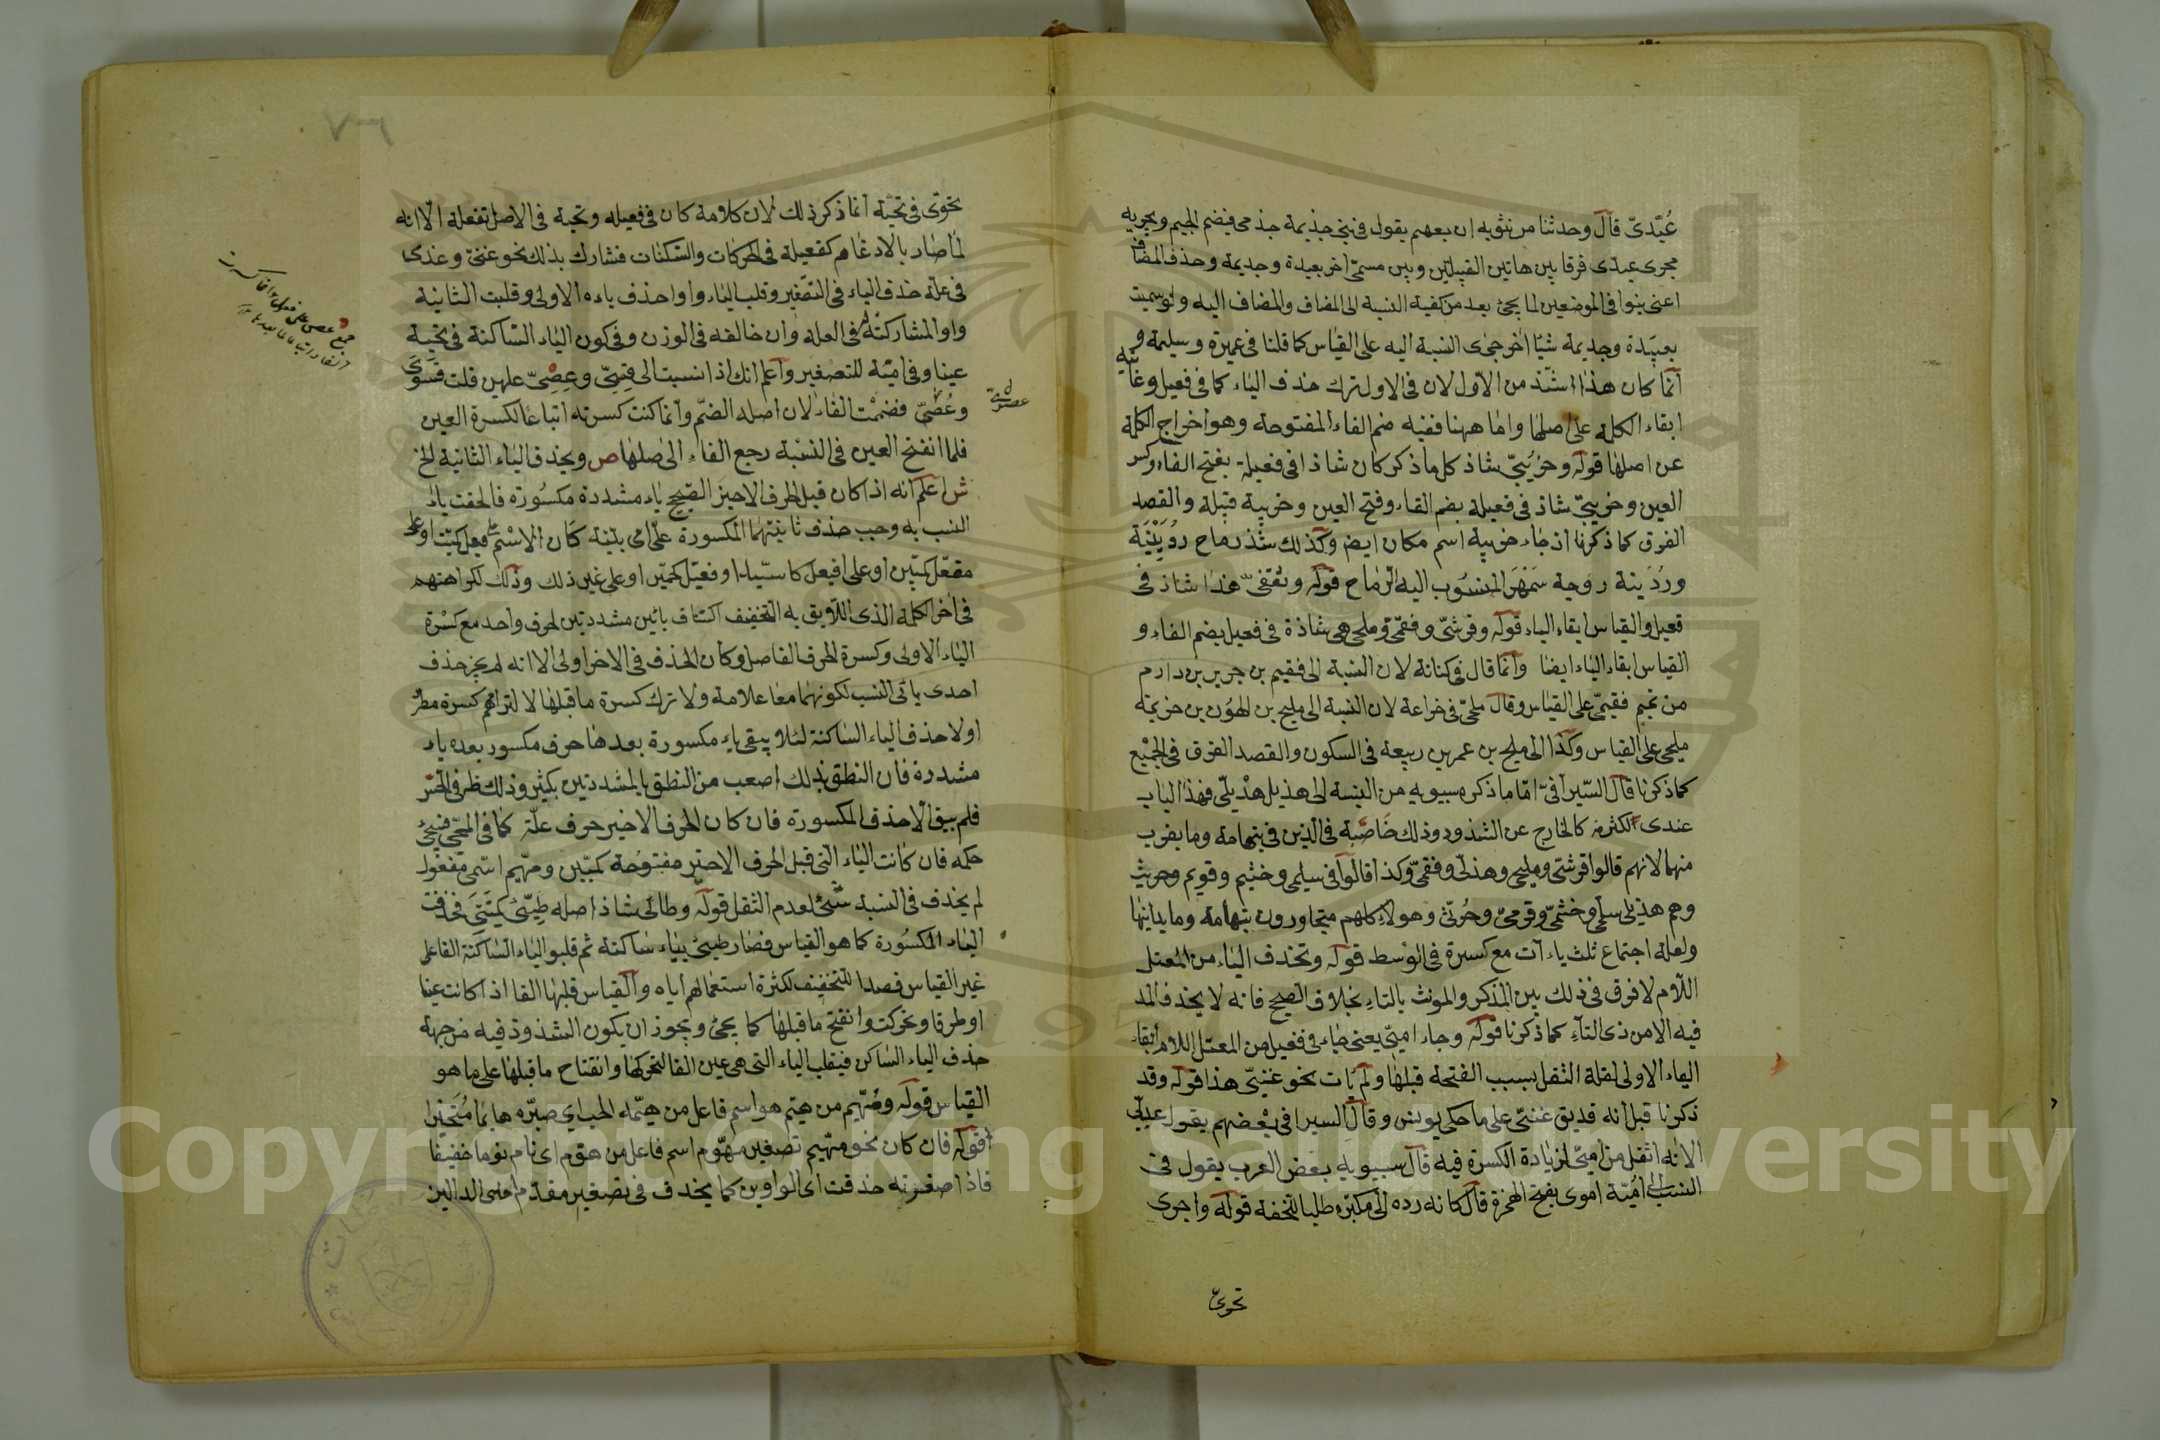 عُبَدىّ قال وحدثنا من نثق به ان بعضهم يقول في بني جذيمة جذمى فيضم الجيم ويجريه
مجرى عبدى فرقا بين هاتين القبيلتين وبين مسمى اخر بعبيدة وجذيمة وحذف المضاف
اعنى بنوا في الموضعين لما يجئ بعد من كيفية النسبة الى المضاف والمضاف اليه ولو سميت
بعبيدة وجديمة شيًا اخر جرى النسبة اليه على القياس كما قلنا في عميرة وسليمة و
انما كان هذا اشذ من الاول لان في الاول ترك حذف الياء كما في فعيل وغايته
ابقاء الكلمة على اصلها واما ههنا ففيه ضم الفاء المفتوحة وهو اخراج الكلمة
عن اصلها قوله وخريبىّ شاذ كل ما ذكر كان شاذا في فعيلة بفتح الفاء وكسر
العين وخريبىّ شاذ في فعيلة بضم الفاء وفتح العين وخريبة قبيلة والقصد
الفرق كما ذكرنا اذ جاء خريبة اسم مكان ايضا وكذلك شذ رماح رُدَيْنِيَة
ورُدَينة زوجة سَمْهَر المنسُوب اليه الرماح قوله وثقفىّ هذا شاذ في
فعيل والقياس ابقاء الياء قوله وقرشىّ وفقمىّ وملحى هي شاذة في فعيل بضم الفاء و
القياس ابقاء الياء ايضا وانما قال في كنانة لان النسبة الى فقيم بن جرير بن دارم
من تميم فقيمىّ على القياس وقال ملحىّ في خزاعة لان النسبة الى مليح بن الهوُن بن خزيمة
مليحى على القياس وكذا الى مليح بن عمر بن ربيعة في السكون والقصد الفرق في الجميع
كما ذكرنا قال السّيرافىّ امّا ما ذكره سيبويه من النسبة الى هذيل هذيلىّ فهذا الباب
عندى لكثرته كالخارج عن الشذوذ وذلك خاصّة في الذين في تهامة وما يقرب
منها لانهم قالوا قرشىّ ومليحى وهذلىّ وفقمىّ وكذا قالوا في سليمى وخثيم وقويم وحريث
وهم هذيل سلمى وخثمىّ وقومىّ وحُرثى وهولاء كلهم متجاورون بتهامة وما يدانيها
ولعله اجتماع ثلث ياءآت مع كسرة في الوسط قوله وتحذف الياء من المعتل
اللام لا فرق في ذلك بين المذكر والمونث بالتاء بخلاف الصحيح فانه لا يحذف المد
فيه الا من ذى التاء كما ذكرنا قوله وجاء اميىّ يعنى جاء في فعيل من المعتل اللام ابقاء
الياء الاولى لقلة الثقل بسبب الفتحة قبلها ولم يات نحو غنيىّ هذا قوله وقد
ذكرنا قبل انه قد يق غنيىّ على ما حكى يونس وقال السيرافى بعضهم يقول عديىّ
الا انه اثقل من اميىّ لزيادة الكسرة فيه قال سيبويه بعض العرب يقول في
النسب الى اُميّة اَموى بفتح الهمزة قال كانه رده الى مكبّره طلبا للخفة قوله واجرى
تحوىّ
تحوّى في تحيّة انما ذكر ذلك لان كلامه كان في فعيله وتحية في الاصل تفعلة الّا انه
لما صار بالادغام كفعيلة في الحركات والسّكنات فشارك بذلك نحو غنىّ وعدى
في علة حذف الياء في التصغير وقلب الياء واوا حذف ياءه الاولى وقلبت الثانية
واوا لمشاركته له في العله وان خالفه في الوزن وفي كون الياء الساكنة في تحية
عينا وفي اميّة للتصغير واعلم انك اذا نسبت الى قِسِىّ وعِصِىّ علمين قلت قسوى
وعُصَوىّ فضممت الفاء لان اصله الضمّ وانما كنت كسرته اتباعا لكسرة العين
عصوىّ
فلما انفتح العين في النسبة رجع الفاء الى اصلها ص ويحذف الياء الثانية الخ
ش اعلم انه اذا كان قبل الحرف الاخير الصحيح ياء مشددة مكسُورة فالحقت ياء
النسب به وجب حذف ثانيتهما المكسورة على اى بنية كان الاسْم على فيعل كميّت او على
مفعّل كمبيّن او على افيعل كاسيّد او فعيّل كحميّر او على غير ذلك وذلك لكراهتهم
في اخر الكلمة الذى اللايق به التخفيف اكتناف يائين مشددتين لحرف واحد مع كسْرة
الياء الاولى وكسرة الحرف الفاصل وكان الحذف في الاخر اولى الا انه لم يجز حذف
احدى يائى النسب لكونهما معا علامة ولا ترك كسرة ما قبلها لالتزامهم كسرة مطرد
اولا حذف الياء الساكنة لئلا يبقى ياء مكسورة بعدها حرف مكسور بعده ياء
مشددة فان النطق بذلك اصعب من النطق بالمشددتين بكثير وذلك ظاهر في الحسّ
فلم يبق الا حذف المكسورة فان كان الحرف الاخير حرف علّة كما في المحيّى فيجئ
حكمه فان كانت الياء التى قبل الحرف الاخير مفتوحة كمبيّن ومهيّم اسمى مفعول
لم يحذف في النسبة شئ لعدم الثقل قوله وطائى شاذ اصله طيّئ كميّت فحذفت
الياء المكسُورة كما هو القياس فصار طيئى بياء ساكنة ثم قلبوا الياء الساكنة الفا على
غير القياس قصدا للتخفيف لكثرة استعمالهم اياه والقياس قلبها الفا اذا كانت عينا
او طرفا وتحركت وانفتح ما قبلها كما يجئ ويجوز ان يكون الشذوذ فيه من جهة
حذف الياء الساكن فيقلب الياء التى هى عين الفا لتحركها وانفتاح ما قبلها على ما هو
القياس قوله ومُهيّم من هيّم هو اسم فاعل من هيّمه الحب اي صيّره هايما متحيرا
قوله فان كان نحو مهيّم تصغير مهوّم اسم فاعل من هوّم اى نام نوما خفيفا
فاذا صغرته حذفت احدى الواوين كما يحذف في تصغير مقدّم احدى الدالين